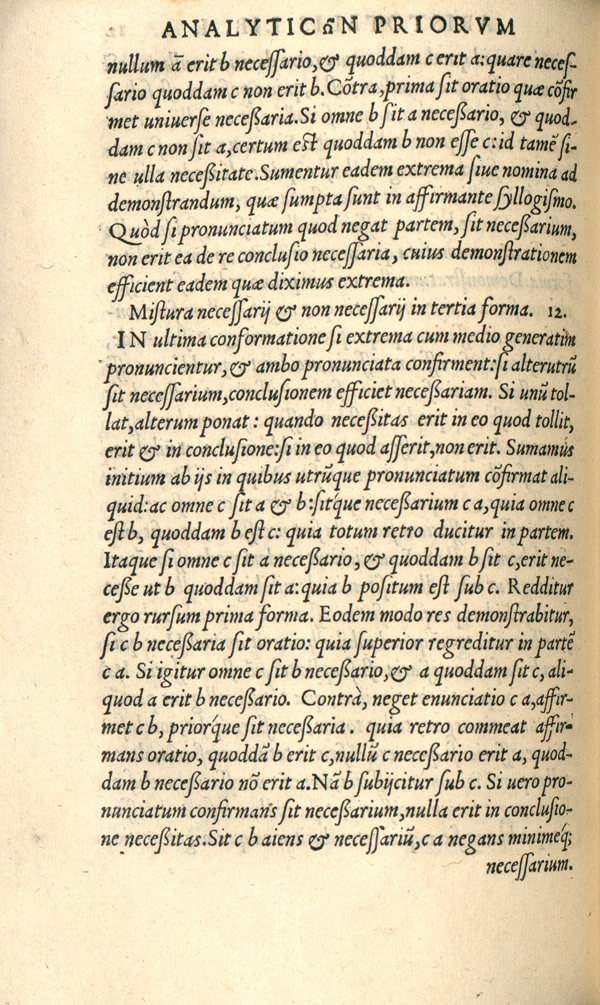 ANALYTICῶN PRIORVM
nullum ā erit b necessario, & quoddam c erit a: quare neces-
sario quoddam c non erit b. Cōtra, prima sit oratio quæ cōfir
met uniuerse neceßaria. Si omne b sit a necesario, & quod-
dam c non sit a, certum est quoddam b non esse c: id tamē si-
ne ulla neceßitate. Sumentur eadem extrema siue nomina ad
demonstrandum, quæ sumpta sunt in affirmante syllogismo.
Quòd si pronunciatum quod negat partem, sit necesarium,
non erit ea de re conclusio necessaria, cuius demonstrationem
efficient eadem quæ diximus extrema.
Mistura necessarij & non necessarij in tertia forma. 12.
IN ultima conformatione si extrema cum medio generatim
pronuncientur, & ambo pronunciata confirment: si alterutrū
sit necessarium, conclusionem efficiet neceßariam. Si unū tol-
lat, alterum ponat: quando neceßitas erit in eo quod tollit,
erit & in conclusione: si in eo quod asserit, non erit. Sumamus
initium ab ijs in quibus utrūque pronunciatum cōfirmat ali-
quid: ac omne c sit a & b: sítque neceßarium c a, quia omne c
est b, quoddam b est c: quia totum retro ducitur in partem.
Itaque si omne c sit a neceßario, & quoddam b sit c, erit ne-
ceße ut b quoddam sit a: quia b positum est sub c. Redditur
ergo rursum prima forma. Eodem modo res demonstrabitur,
si c b neceßaria sit oratio: quia superior regreditur in partē
c a. Si igitur omne c sit b neceßario, & a quoddam sit c, ali-
quod a erit b neceßario. Contrà, neget enunciatio c a, affir-
met c b, priórque sit neceßaria. quia retro commeat affir-
mans oratio, quoddā b erit c, nullū c neceßario erit a, quod-
dam b neceßario nō erit a. Nā b subijcitur sub c. Si uero pro-
nunciatum confirmans sit neceßarium, nulla erit in conclusio-
ne neceßitas. Sit c b aiens & necessariū, c a negans minimeq́;
necessarium.